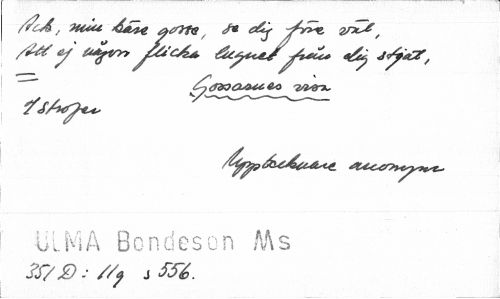 Ack, min käre gosse, se dig före väl,
Att ej någon flicka lugnet från dig stjäl,
Gossarnes visa
7 strofer
Upptecknare anonym
ULMA Bondeson Ms
351 D: 11g s 556.